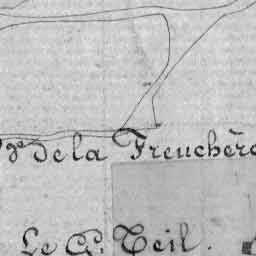 de la Freuchère
Le Gd. Teil.